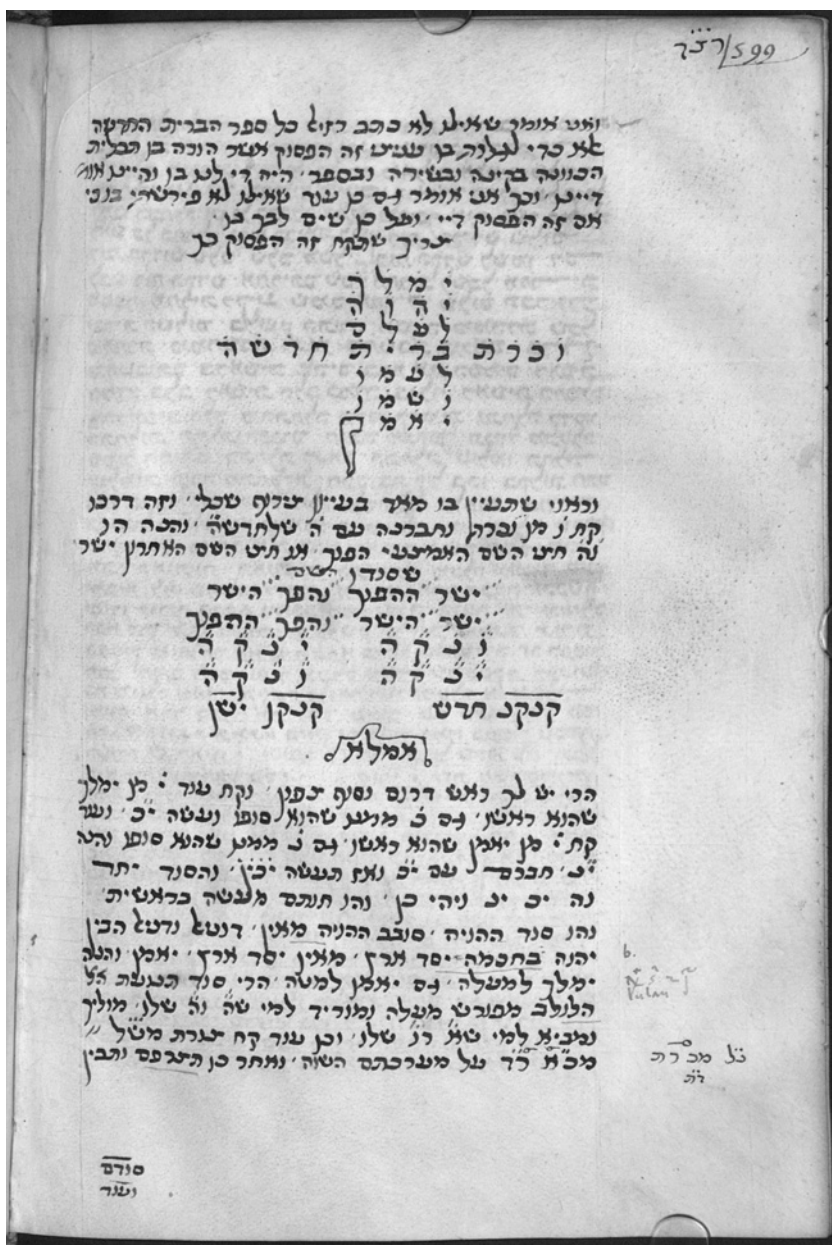 599/רצ״ר
ואני אומר שאילו לא כתב רזיא כל ספר הברית החדשה
אלא כדי לגלות בו ענין זה הפסוק אשר הורה בו תכלית
הכוונה בקינה ובשירה ובספר היה די לנו בו והיינו אומ׳
דיינו וכך אני אומר גם כן עוד שאילו לא פירשתי בו כי
אם זה הפסוק דיי ועל כן שים לבך בו
צריך שתקח זה הפסוק כך
י מ ל ך
י ה ו ה
ל ע ל ם
ו כ ר ת ב ר י ת ח ד ש ה
ל ע מ ו
ו ש מ ו
י א מ ן
וראוי שתעיין בו מאד בעיון צרוף שכלי וזה דרכו
קח ו מן וכרת נתברכה עם ה שלחדשה והנה הן
וה חצי השם האמיצעי הפוך או חצי השם האחרון ישר
שסודו השם
ישר ההפוך והפך הישר
ישר הישר והפך ההפוך
ו כ ק ה י כ ק ה
י כ ק ה ו כ ק ה
קנקנ חדש קנקן ישן
אמלא
הרי יש לך ראש דרום וסוף צפון וקח עוד י מן ימלך
שהוא ראשו גם כ ממנו שהוא סופו ונעשה יכ ועוד
קח י מן יאמן שהוא ראשו גם נ ממנו שהוא סופו והנה
ינ חברם עם יכ ואז תעשה יכין והסוד יחד
וה יכ ינ ויהי כן והו חותם מעשה בראשית
והו סוד ההויה סובב ההויה מאין דוטא ודטא הבין
יהוה בחכמה יסד ארץ מאין יסד ארץ יאמן והנה
ימלך למעלה גם יאמן למטה הרי סוד תנועת
הלולב מפורש מעלה ומוריד למי שה וה שלו מוליך
ומביא למי שא רו שלו וכן עוד קח צורת משל
מכא רד על מערכתם השוה ואחר כן תצרפם ותבין
b.
כל מכ רת
דת
סודם
ועוד